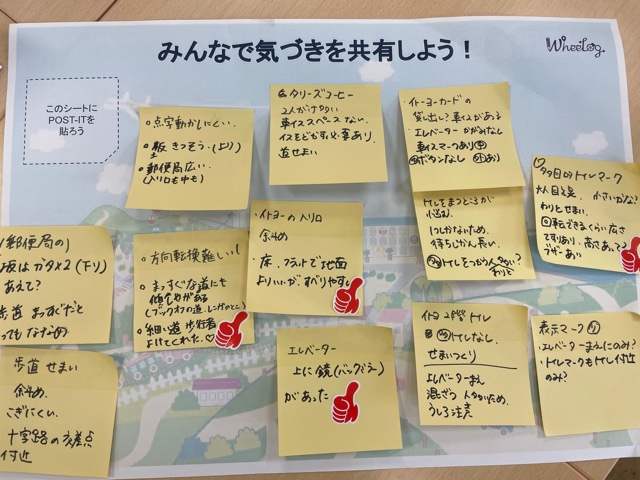 みんなで気づきを共有しよう！
WheeLog.
このシートに
POST-ITを
貼ろう
・点字動かしにくい.
きつそう.(より)
・郵便局広い
(入口も中も)
タリーズコーヒー
2人がけ
車イススペースない.
イスをどかす必要あり.
道せまい
イトーヨーカドーの
貸し出し? 車イスがある
エレベーターかがみなし
車イスマークあり
ボタンなし
トイレをまつところが
1つしかないため、
待ち時間長い.
多目的トイレマーク
わりとせまい.
回転できるくらい広さ
手すりあり、高さあってる?
ブザーあり
郵便局の
板はガタ×2(下り)
あえて?
歩道 まっすぐだと
ってもななめ
・方向転換難しい!
・まっすぐな道にも
傾きがある
・細い道 歩行者
よけてくれた.♡
・イトヨーの入口
斜め
・床.フラットで地面
よりいいがすべりやすい
歩道 せまい
斜め.
こぎにくい.
十字路の交差点
付近
エレベーター
上に鏡(バックミラー)
があった
イトヨ 2階 トイレ
トイレなし.
せまいつくり
エレベーターまえ
混ざつ 人多いため.
うしろ注意
表示マーク
・エレベーターまえにのみ?
・トイレマークもトイレ付近
のみ?